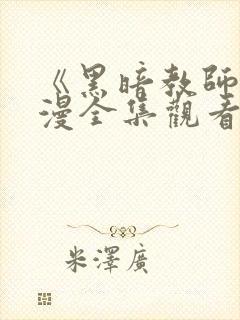 《黑暗教師
漫全集觀看
米澤廣